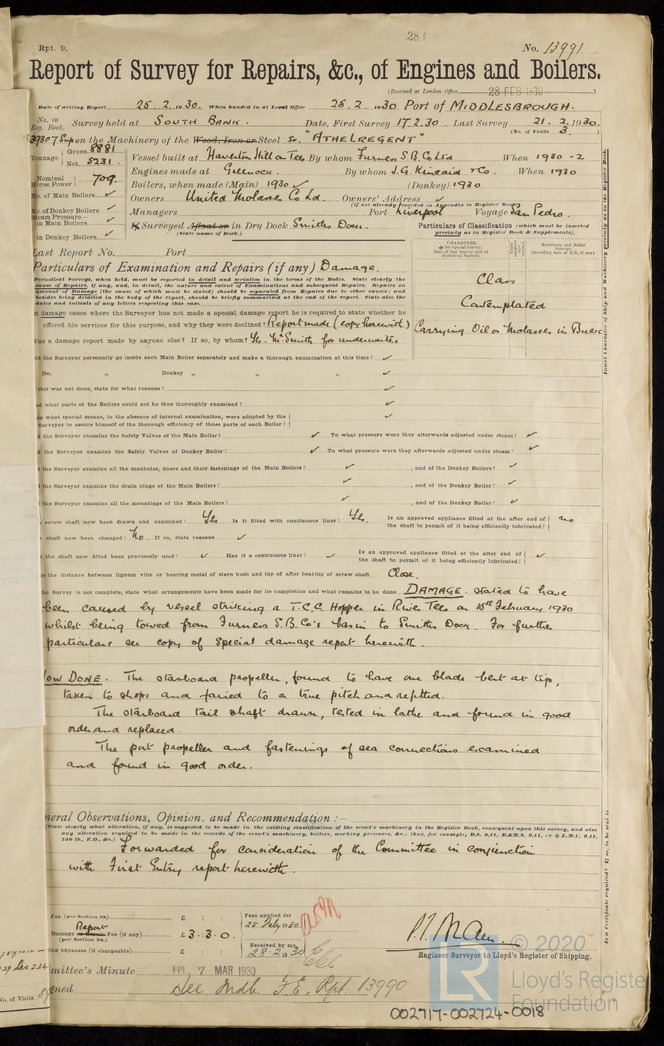 28 F
Rpt. 9.
No. 13991
Report of Survey for Repairs, &c., of Engines and Boilers.
(Received at London Office 28 FEB 1930)
Date of writing Report 25. 2. 1930. When handed in at Local Office 25. 2. 1930 Port of MIDDLESBROUGH.
No. in Reg. Book. Survey held at SOUTH BANK. Date, First Survey 17. 2. 30. Last Survey 21. 2. 1930.
(No. of Visits 3.)
39307 Sup on the Machinery of the Wood, Iron or Steel S. "ATHELREGENT"
Tonnage Gross 8881 Net 5231
Vessel built at Haverton Hill on Tees By whom Furness S.B. Co Ltd When 1930 - 2
Engines made at Greenock By whom J.G. Kincaid & Co. When 1930
Nominal Horse Power 709
Boilers, when made (Main) 1930 (Donkey) 1930
No. of Main Boilers
Owners United Molasses Co Ld. Owners' Address
(if not already recorded in Appendix to Register Book)
No. of Donkey Boilers
Managers Port Liverpool Voyage San Pedro.
Steam Pressure in Main Boilers
If Surveyed Afloat or in Dry Dock Smiths Dock.
(State name of Dock.)
in Donkey Boilers
Particulars of Classification (which must be inserted precisely as in Register Book & Supplements).
Last Report No. Port
Particulars of Examination and Repairs (if any) Damage.
Class
Contemplated
Carrying Oil or Molasses in Bulk
Periodical Surveys, when held, must be reported in detail and seriatim in the terms of the Rules. State clearly the
cause of Repairs, if any, and, in detail, the nature and extent of Examinations and subsequent Repairs. Repairs on
account of Damage (the cause of which must be stated) should be separated from Repairs due to other causes; and
besides being detailed in the body of the report, should be briefly summarised at the end of the report. State also the
dates and initials of any letters respecting this case.
n damage cases where the Surveyor has not made a special damage report he is required to state whether he
offered his services for this purpose, and why they were declined? Report made (copy herewith)
Was a damage report made by anyone else? If so, by whom? Yes. Mr Smith for underwriters
d the Surveyor personally go inside each Main Boiler separately and make a thorough examination at this time?
Do. " Donkey " " "
this was not done, state for what reasons?
d what parts of the Boilers could not be thus thoroughly examined?
n what special means, in the absence of internal examination, were adopted by the
Surveyor to assure himself of the thorough efficiency of those parts of each Boiler?
d the Surveyor examine the Safety Valves of the Main Boiler? To what pressure were they afterwards adjusted under steam?
d the Surveyor examine the Safety Valves of Donkey Boiler? To what pressure were they afterwards adjusted under steam?
d the Surveyor examine all the manholes, doors and their fastenings of the Main Boilers? , and of the Donkey Boilers?
d the Surveyor examine the drain plugs of the Main Boilers? , and of the Donkey Boiler?
d the Surveyor examine all the mountings of the Main Boilers? , and of the Donkey Boilers?
screw shaft now been drawn and examined? Yes Is it fitted with continuous liner? Yes. Is an approved appliance fitted at the after end of the shaft to permit of it being efficiently lubricated? no
shaft now been changed? No. If so, state reasons
the shaft now fitted been previously used? Has it a continuous liner? Is an approved appliance fitted at the after end of the shaft to permit of it being efficiently lubricated?
the distance between lignum vitæ or bearing metal of stern bush and top of after bearing of screw shaft Close.
he Survey is not complete, state what arrangements have been made for its completion and what remains to be done DAMAGE. stated to have
been caused by vessel striking a T.C.C. Hopper in River Tees on 15th February 1930
whilst being towed from Furness S.B. Co's basin to Smiths Dock. For further
particulars see copy of special damage report herewith.
NOW DONE. The starboard propeller, found to have one blade bent at tip,
taken to shops and faired to a true pitch and refitted.
The starboard tail shaft drawn, tested in lathe and found in good
order and replaced.
The port propeller and fastenings of sea connections examined
and found in good order.
neral Observations, Opinion, and Recommendation :—
Forwarded for consideration of the Committee in conjunction
with First Entry report herewith.
Fee (per Section 28) £ : :
Fees applied for 25 Feby 1930
Damage Report Fee (if any) £ 3 . 3 . 0 .
(per Section 28.)
ing expenses (if chargeable) £ : :
Received by me, 28. 2. 1930
Engineer Surveyor to Lloyd's Register of Shipping.
mmittee's Minute FRI. 7 MAR 1930
ned See Mdb. F.E. Rpt. 13990
No. of Visits
© 2020
LR
Lloyd's Register
Foundation
002717-002724-0018